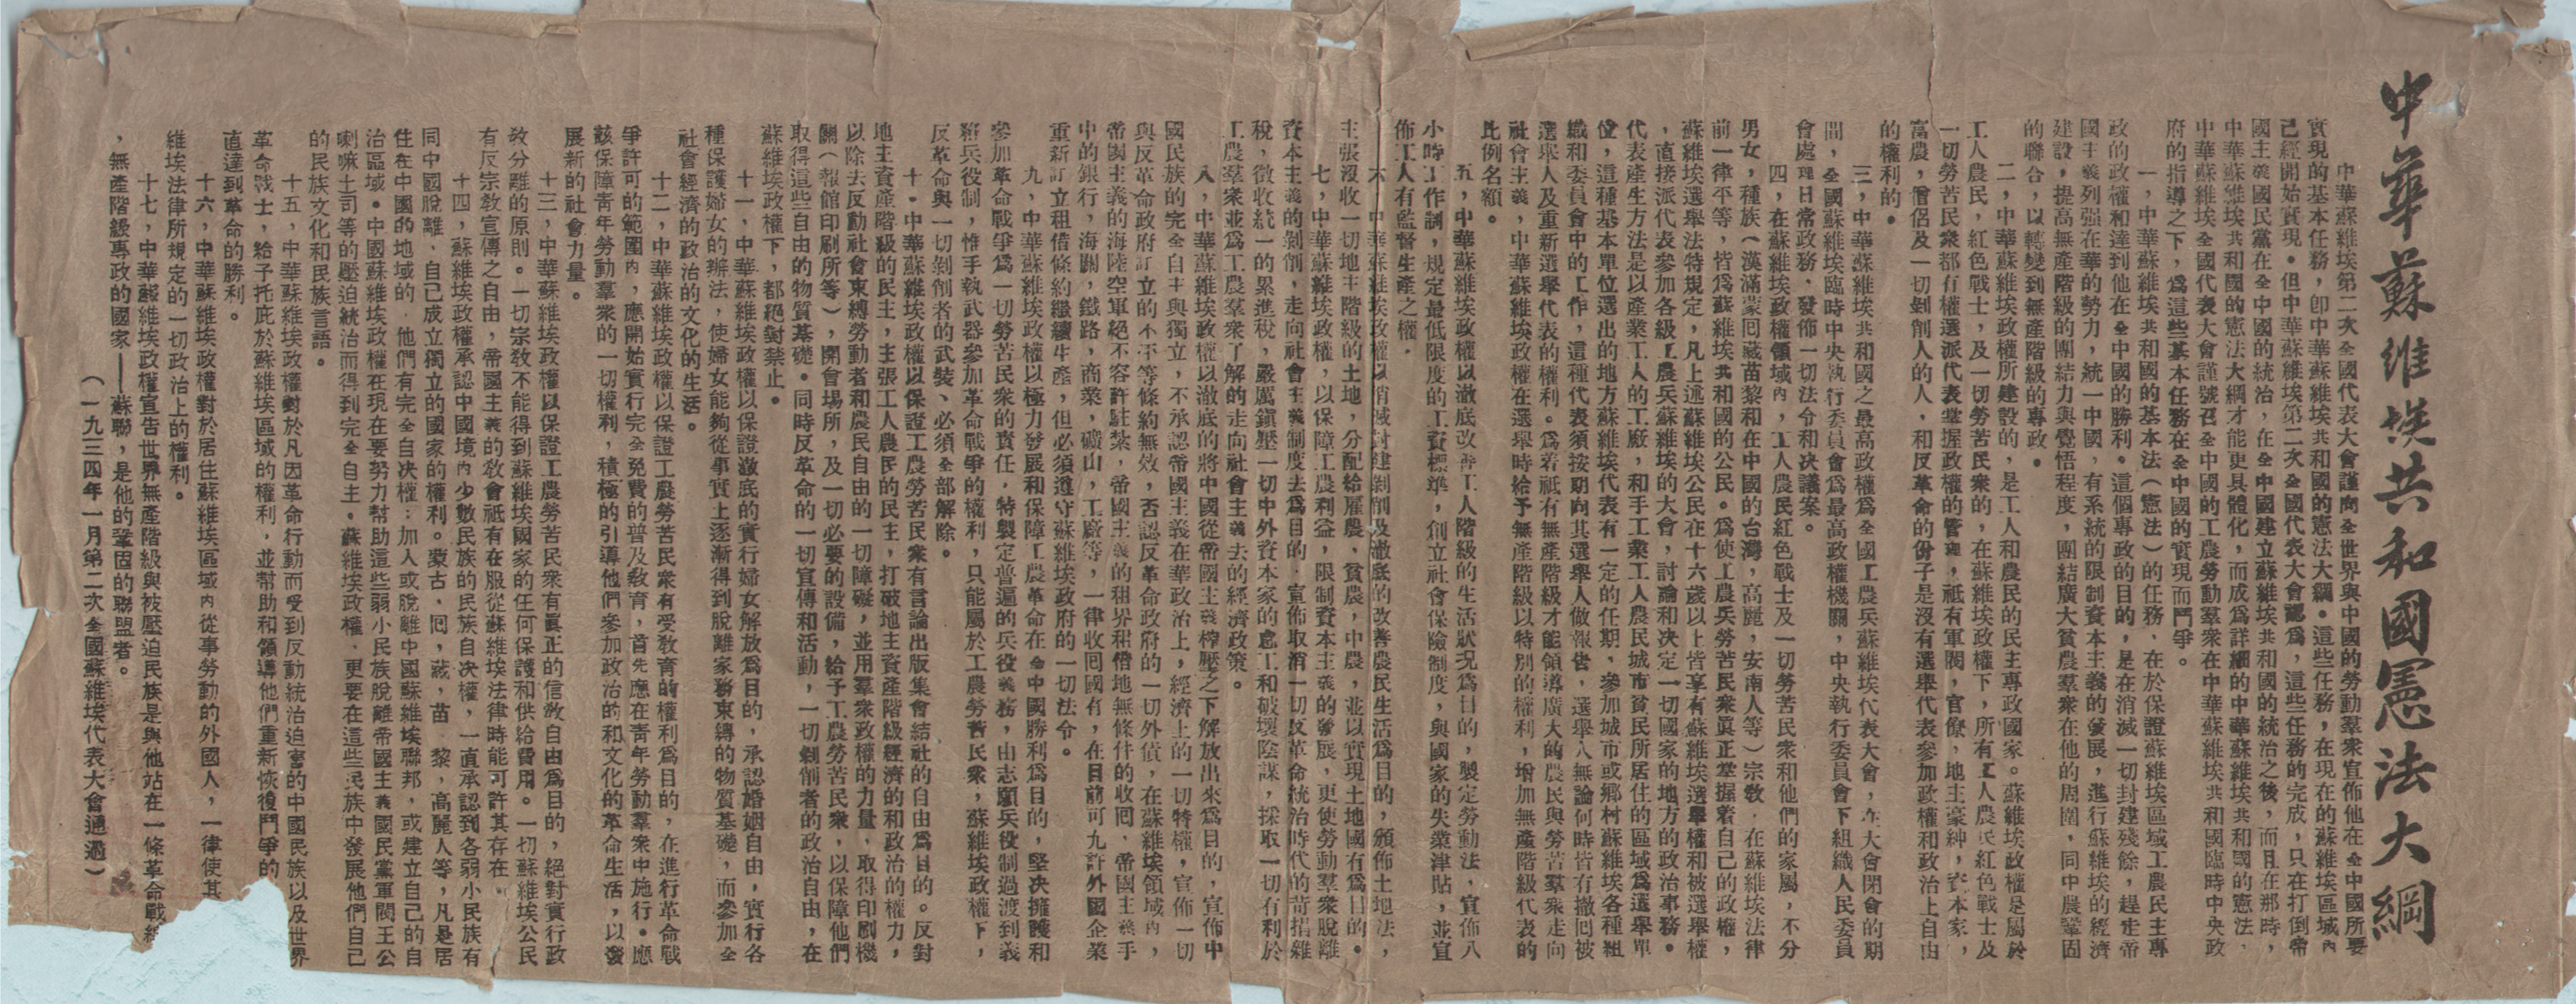 中華蘇維埃共和國憲法大綱
中華蘇維埃第二次全國代表大會謹向全世界與中國的勞動羣衆宣佈他在全中國所要
實現的基本任務，卽中華蘇維埃共和國的憲法大綱。這些任務，在現在的蘇維埃區域內
已經開始實現。但中華蘇維埃第二次全國代表大會認爲，這些任務的完成，只在打倒帝
國主義國民黨在全中國的統治，在全中國建立蘇維埃共和國的統治之後，而且在那時，
中華蘇維埃共和國的憲法大綱才能更具體化，而成爲詳細的中華蘇維埃共和國的憲法，
中華蘇維埃全國代表大會謹號召全中國的工農勞動羣衆在中華蘇維埃共和國臨時中央政
府的指導之下，爲這些基本任務在全中國的實現而鬥爭。
一，中華蘇維埃共和國的基本法（憲法）的任務，在於保證蘇維埃區域工農民主專
政的政權和達到他在全中國的勝利。這個專政的目的，是在消滅一切封建殘餘，趕走帝
國主義列强在華的勢力，統一中國，有系統的限制資本主義的發展，進行蘇維埃的經濟
建設，提高無產階級的團結力與覺悟程度，團結廣大貧農羣衆在他的周圍，同中農鞏固
的聯合，以轉變到無產階級的專政。
二，中華蘇維埃政權所建設的，是工人和農民的民主專政國家。蘇維埃政權是屬於
工人農民，紅色戰士，及一切勞苦民衆的，在蘇維埃政權下，所有工人農民紅色戰士及
一切勞苦民衆都有權選派代表掌握政權的管理，祇有軍閥，官僚，地主豪紳，資本家，
富農，僧侶及一切剝削人的人，和反革命的份子是沒有選舉代表參加政權和政治上自由
的權利的。
三，中華蘇維埃共和國之最高政權爲全國工農兵蘇維埃代表大會，在大會閉會的期
間，全國蘇維埃臨時中央執行委員會爲最高政權機關，中央執行委員會下組織人民委員
會處理日常政務，發佈一切法令和决議案。
四，在蘇維埃政權領域內，工人農民紅色戰士及一切勞苦民衆和他們的家屬，不分
男女，種族（漢滿蒙回藏苗黎和在中國的台灣，高麗，安南人等）宗敎，在蘇維埃法律
前一律平等，皆爲蘇維埃共和國的公民。爲使工農兵勞苦民衆眞正掌握着自己的政權，
蘇維埃選舉法特規定，凡上述蘇維埃公民在十六歲以上皆享有蘇維埃選舉權和被選舉權
，直接派代表參加各級工農兵蘇維埃的大會，討論和决定一切國家的地方的政治事務。
代表產生方法是以產業工人的工廠，和手工業工人農民城市貧民所居住的區域爲選舉單
位，這種基本單位選出的地方蘇維埃代表有一定的任期，參加城市或鄉村蘇維埃各種組
織和委員會中的工作，這種代表須按期向其選舉人做報告，選舉人無論何時皆有撤回被
選舉人及重新選舉代表的權利。爲着祇有無產階級才能領導廣大的農民與勞苦羣衆走向
社會主義，中華蘇維埃政權在選舉時給予無產階級以特別的權利，增加無產階級代表的
比例名額。
五，中華蘇維埃政權以澈底改善工人階級的生活狀况爲目的，製定勞動法，宣佈八
小時工作制，規定最低限度的工資標準，創立社會保險制度，與國家的失業津貼，並宣
佈工人有監督生產之權。
六，中華蘇維埃政權以消滅封建剝削及澈底的改善農民生活爲目的，頒佈土地法，
主張沒收一切地主階級的土地，分配給雇農，貧農，中農，並以實現土地國有爲目的。
七，中華蘇維埃政權，以保障工農利益，限制資本主義的發展，更使勞動羣衆脫離
資本主義的剝削，走向社會主義制度去爲目的，宣佈取消一切反革命統治時代的苛捐雜
稅，徵收統一的累進稅，嚴厲鎭壓一切中外資本家的怠工和破壞陰謀，採取一切有利於
工農羣衆並爲工農羣衆了解的走向社會主義去的經濟政策。
八，中華蘇維埃政權以澈底的將中國從帝國主義榨壓之下解放出來爲目的，宣佈中
國民族的完全自主與獨立，不承認帝國主義在華政治上，經濟上的一切特權，宣佈一切
與反革命政府訂立的不平等條約無效，否認反革命政府的一切外債，在蘇維埃領域內，
帝國主義的海陸空軍絕不容許駐紮，帝國主義的租界租借地無條件的收回，帝國主義手
中的銀行，海關，鐵路，商業，礦山，工廠等，一律收回國有，在目前可允許外國企業
重新訂立租借條約繼續生產，但必須遵守蘇維埃政府的一切法令。
九，中華蘇維埃政權以極力發展和保障工農革命在全中國勝利爲目的，堅决擁護和
參加革命戰爭爲一切勞苦民衆的責任，特製定普遍的兵役義務，由志願兵役制過渡到義
務兵役制，惟手執武器參加革命戰爭的權利，只能屬於工農勞苦民衆，蘇維埃政權下，
反革命與一切剝削者的武裝、必須全部解除。
十。中華蘇維埃政權以保證工農勞苦民衆有言論出版集會結社的自由爲目的。反對
地主資產階級的民主，主張工人農民的民主，打破地主資產階級經濟的和政治的權力，
以除去反動社會束縛勞動者和農民自由的一切障礙，並用羣衆政權的力量，取得印刷機
關（報館印刷所等），開會場所，及一切必要的設備，給予工農勞苦民衆，以保障他們
取得這些自由的物質基礎。同時反革命的一切宣傳和活動，一切剝削者的政治自由，在
蘇維埃政權下，都絕對禁止。
十一，中華蘇維埃政權以保證澈底的實行婦女解放爲目的，承認婚姻自由，實行各
種保護婦女的辦法，使婦女能夠從事實上逐漸得到脫離家務束縛的物質基礎，而參加全
社會經濟的政治的文化的生活。
十二，中華蘇維埃政權以保證工農勞苦民衆有受敎育的權利爲目的，在進行革命戰
爭許可的範圍內，應開始實行完全免費的普及敎育，首先應在靑年勞動羣衆中施行。應
該保障靑年勞動羣衆的一切權利，積極的引導他們參加政治的和文化的革命生活，以發
展新的社會力量。
十三，中華蘇維埃政權以保證工農勞苦民衆有眞正的信敎自由爲目的，絕對實行政
敎分離的原則。一切宗敎不能得到蘇維埃國家的任何保護和供給費用。一切蘇維埃公民
有反宗敎宣傳之自由，帝國主義的敎會祇有在服從蘇維埃法律時能可許其存在。
十四，蘇維埃政權承認中國境內少數民族的民族自决權，一直承認到各弱小民族有
同中國脫離，自己成立獨立的國家的權利。蒙古，回，藏，苗，黎，高麗人等，凡是居
住在中國的地域的，他們有完全自决權：加入或脫離中國蘇維埃聯邦，或建立自己的自
治區域。中國蘇維埃政權在現在要努力幫助這些弱小民族脫離帝國主義國民黨軍閥王公
喇嘛土司等的壓迫統治而得到完全自主。蘇維埃政權，更要在這些民族中發展他們自己
的民族文化和民族言語。
十五，中華蘇維埃政權對於凡因革命行動而受到反動統治迫害的中國民族以及世界
革命戰士，給予托庇於蘇維埃區域的權利，並幫助和領導他們重新恢復鬥爭的
直達到革命的勝利。
十六，中華蘇維埃政權對於居住蘇維埃區域內從事勞動的外國人，一律使其
維埃法律所規定的一切政治上的權利。
十七，中華蘇維埃政權宣告世界無產階級與被壓迫民族是與他站在一條革命戰線
，無產階級專政的國家——蘇聯，是他的鞏固的聯盟者。
（一九三四年一月第二次全國蘇維埃代表大會通過）